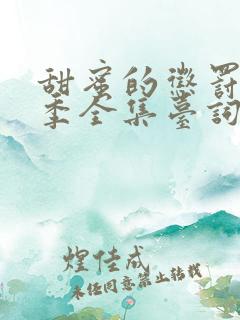 甜蜜的懲罰
季全集臺詞
煌佳成
未经同意禁止转载